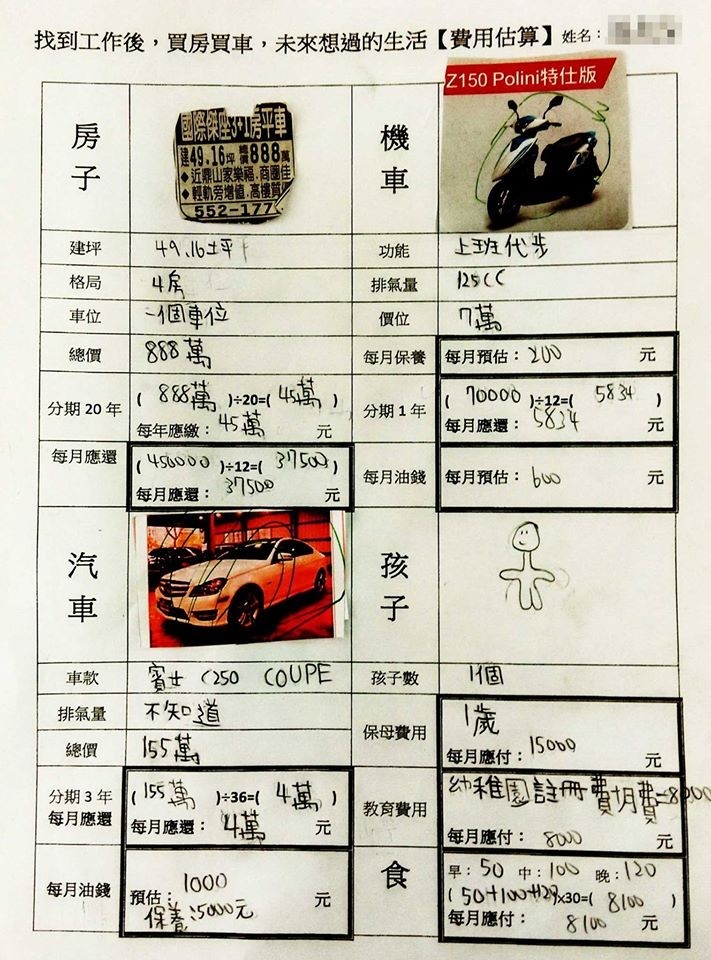 找到工作後，買房買車，未來想過的生活【費用估算】 姓名：
房子
國際傑座3+1房平車
建49.16坪 總價888萬
◆近鼎山家樂福.商圈佳
◆輕軌旁增值.高樓質
552-177
建坪 49.16坪
格局 4房
車位 一個車位
總價 888萬
分期20年 ( 888萬 )÷20=( 45萬 )
每年應繳：45萬 元
每月應還 ( 450000 )÷12=( 37500 )
每月應還：37500 元
機車
Z150 Polini特仕版
功能 上班代步
排氣量 125CC
價位 7萬
每月保養 每月預估：200 元
分期1年 ( 70000 )÷12=( 5834 )
每月應還：5834 元
每月油錢 每月預估：600 元
汽車
車款 賓士 C250 COUPE
排氣量 不知道
總價 155萬
分期3年 ( 155萬 )÷36=( 4萬 )
每月應還 每月應還：4萬 元
每月油錢 預估：1000 元
保養：5000元
孩子
孩子數 1個
保母費用 1歲
每月應付：15000 元
教育費用 幼稚園註冊費+月費=8000
每月應付：8000 元
食
早：50 中：100 晚：120
( 50+100+120 )x30=( 8100 )
每月應付：8100 元